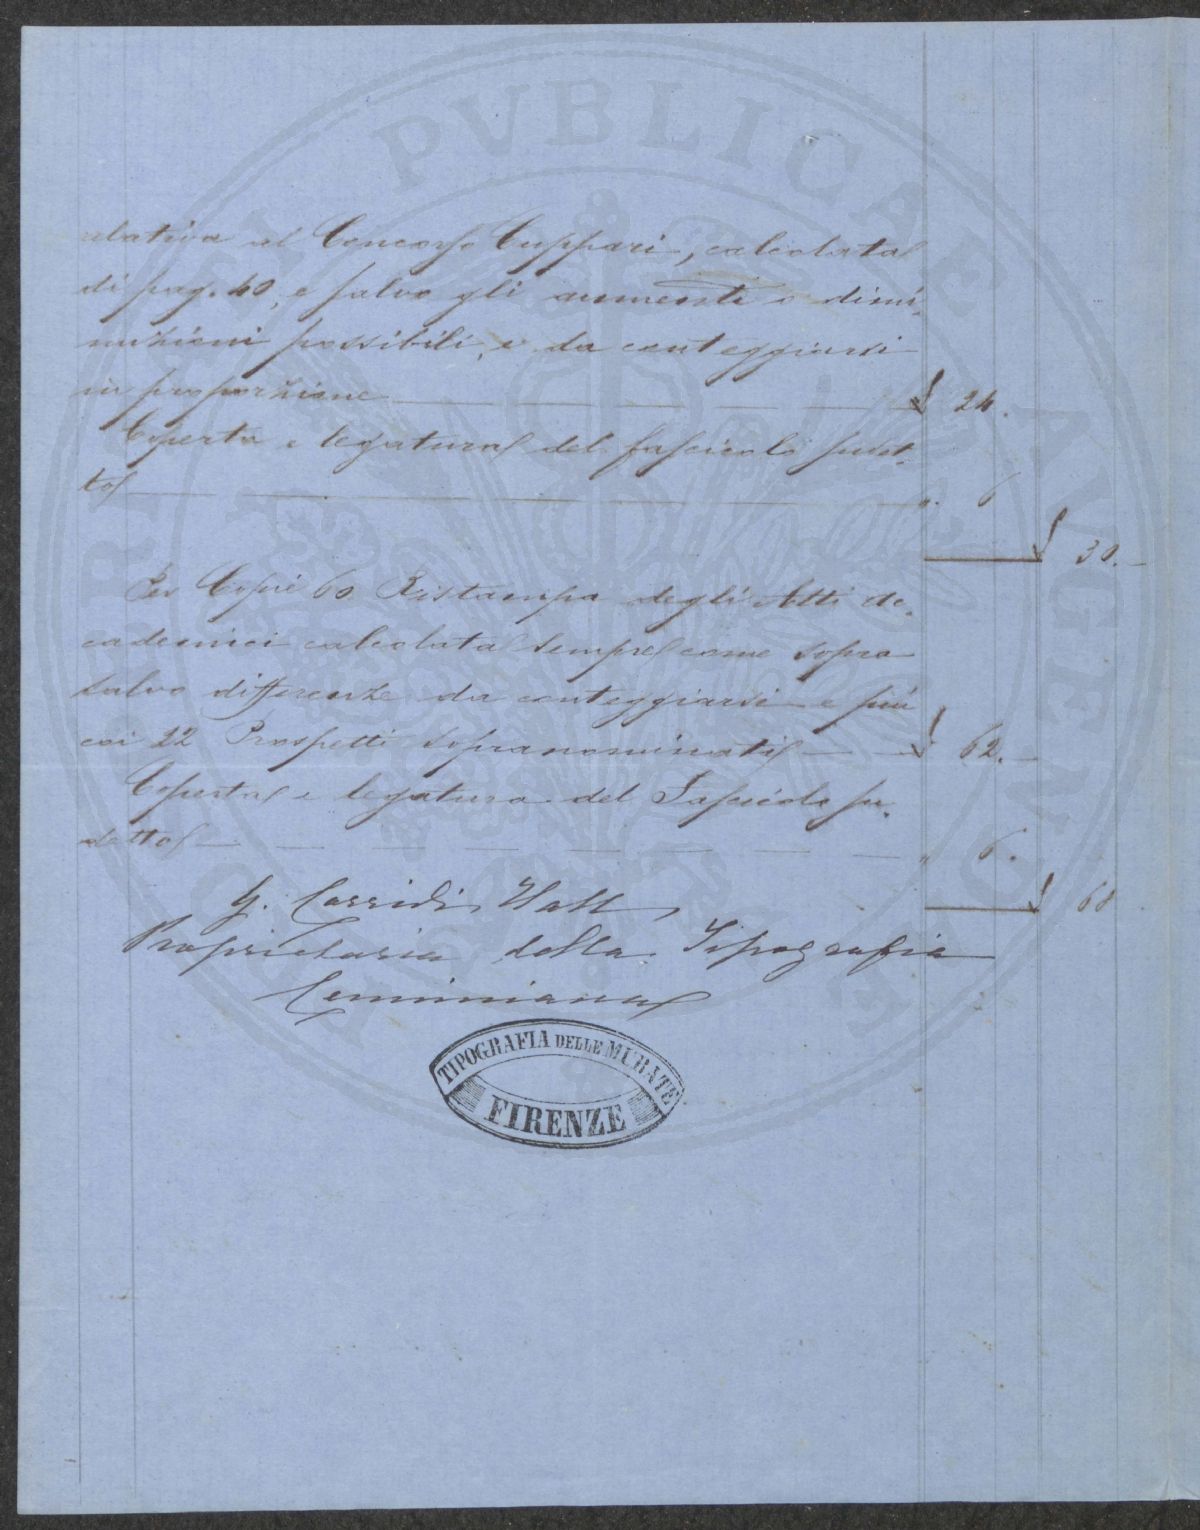 relativa al Concorso Cuppari, calcolata
di pag. 40, e salvo gli aumenti o dimi,
nuzioni possibili, e da conteggiarsi
in proporzione £ 24.
Coperta e legatura del fascicolo sudet,
to " 6
£ 30.
Per Copie 60 Ristampa degli Atti Ac,
cademici calcolata sempre come sopra
salvo differenze da conteggiarsi e più
coi 22 Prospetti sopranominati £ 62.
Coperta e legatura del Fascicolo su,
detto " 6.
£ 68
G. Cassidi Hall
Proprietaria della Tipografia
Cenniniana
TIPOGRAFIA DELLE MURATE
FIRENZE
PVBLICAE